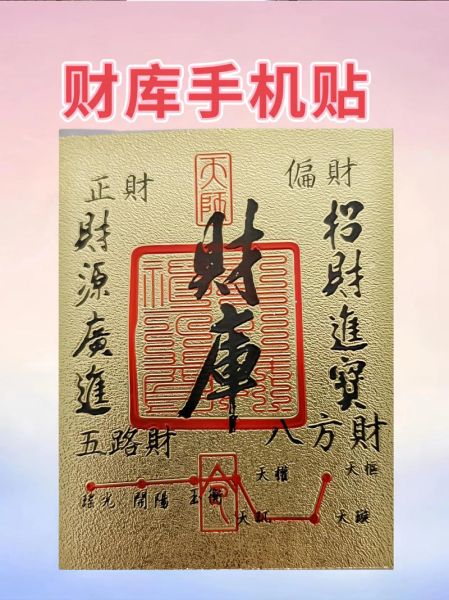 财库手机贴
天師
正財
偏財
財源廣進
財庫
招財進寶
五路財
八方財
天權
天樞
瑤光
開陽
玉衡
天璣
天璇